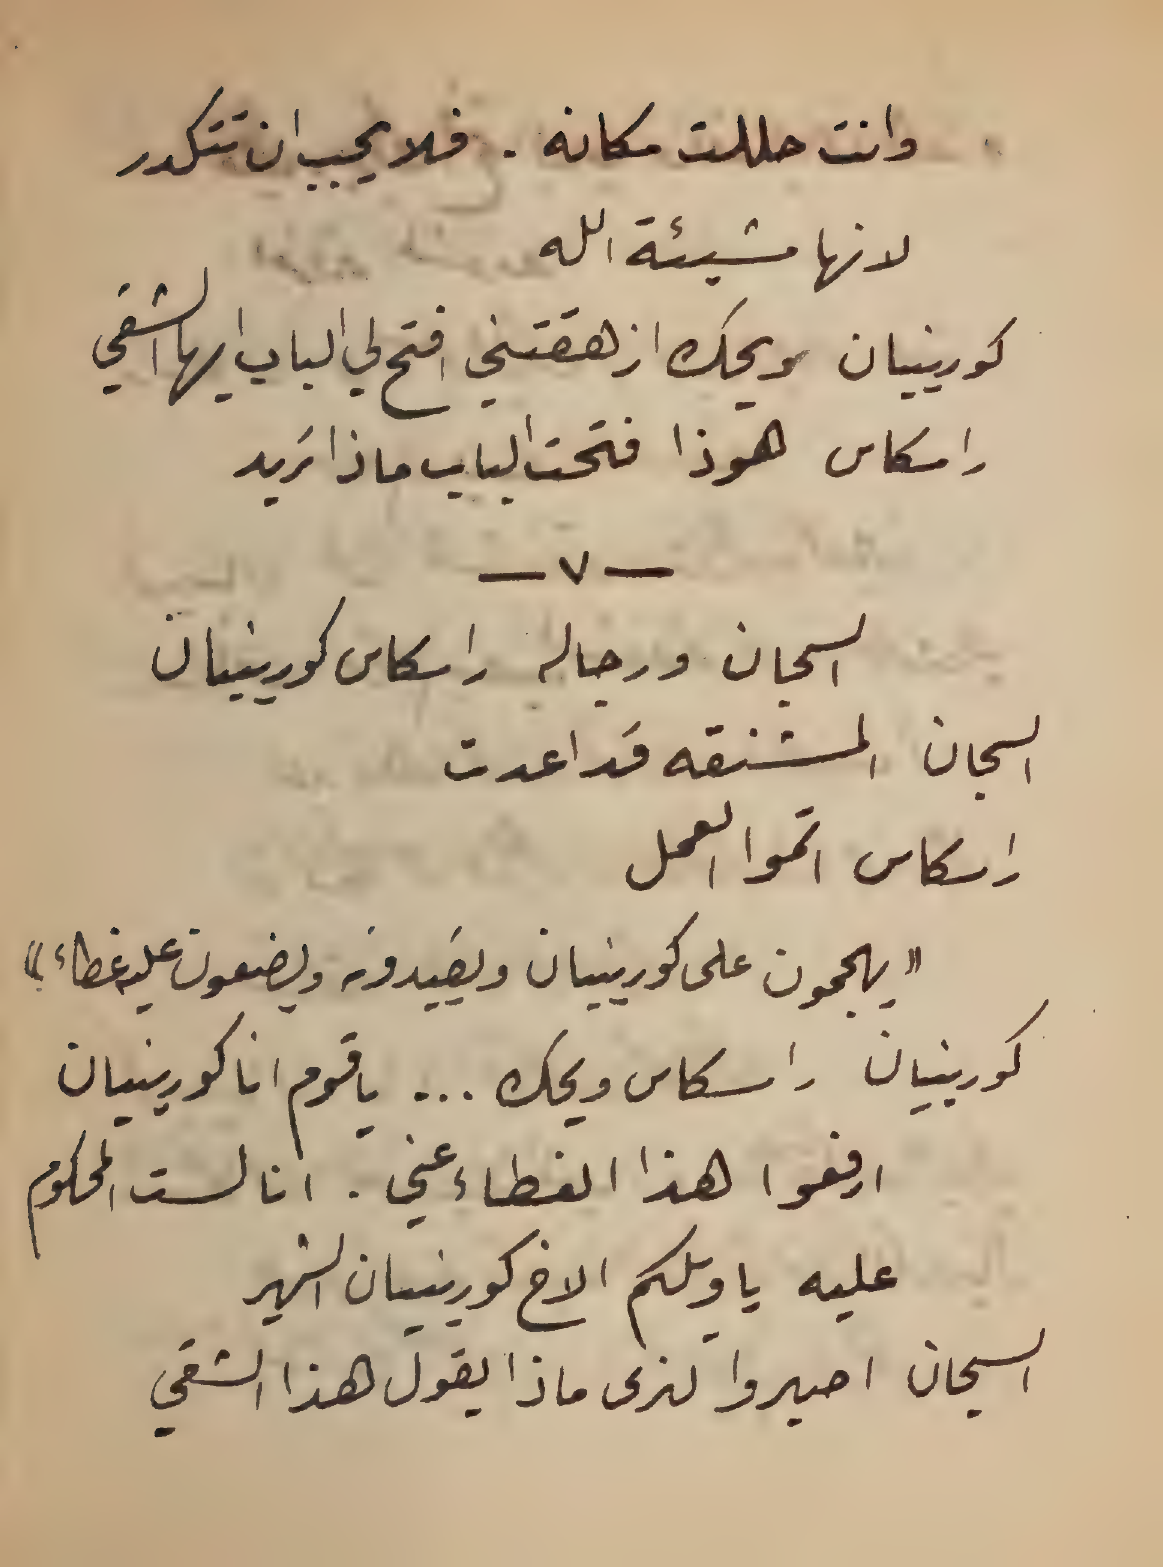 وانت حللت مكانه . فلا يجب ان تتكدر
لانها مشيئة الله
كورينيان ويحك ازهقتني افتح لي الباب ايها الشقي
راسكاس هوذا فتحت الباب ماذا تريد
— ٧ —
السجان ورجاله راسكاس كورينيان
السجان المشنقه قد اعدت
راسكاس اتموا العمل
« يهجمون على كورينيان ويقيدونه ويضعون عليه غطاء »
كورينيان راسكاس ويحك ... يا قوم انا كورينيان
ارفعوا هذا الغطاء عني . انا لست المحكوم
عليه يا ويلكم الاخ كورينيان الشهير
السجان اصبروا لنرى ماذا يقول هذا الشقي